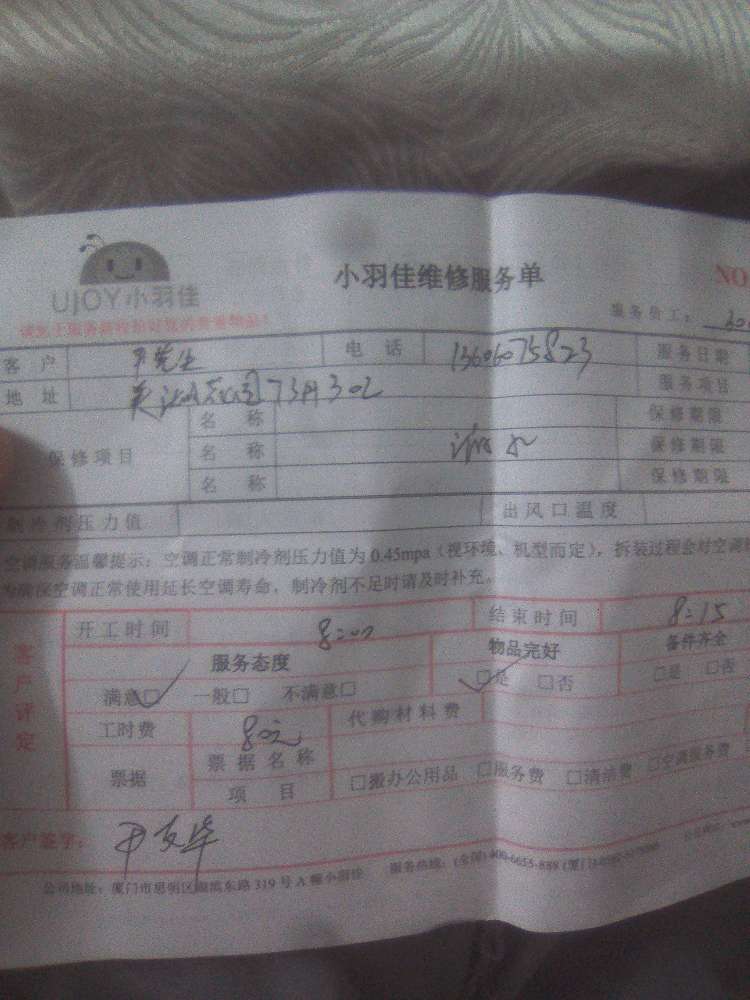 UJOY小羽佳
小羽佳维修服务单 NO
服务员工:
客户 尹先生 电话 13606075823 服务日期
地址 花园73月302 服务项目
名称 保修期限
保修项目 名称 漏水 保修期限
名称 保修期限
制冷剂压力值 出风口温度
空调服务温馨提示:空调正常制冷剂压力值为0.45mpa(视环境、机型而定),拆装过程会对空调
为确保空调正常使用延长空调寿命,制冷剂不足时请及时补充。
客户评定
开工时间 8:00 结束时间 8:15
服务态度 物品完好 备件齐全
满意□ 一般□ 不满意□ □是 □否 □是 □否
工时费 80元 代购材料费
票据 票据名称
项目 □搬办公用品 □服务费 □清洁费 □空调服务费
客户签字: 尹友华
公司地址:厦门市思明区湖滨东路319号A幢小羽佳 服务热线:(全国)400-6655-889(厦门)